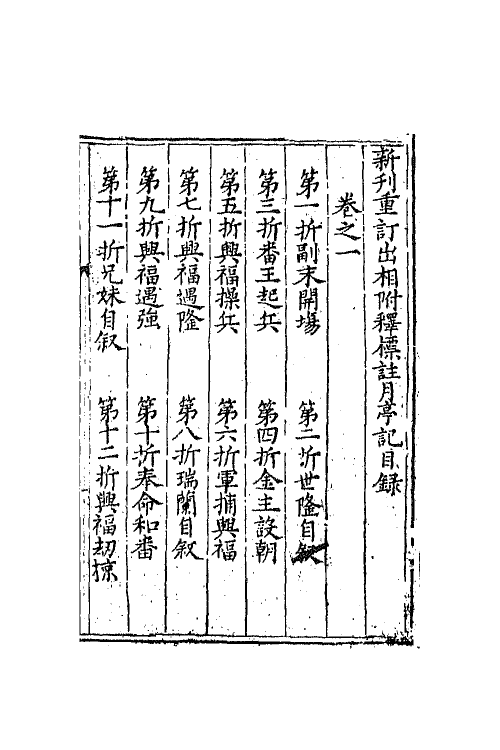 新刊重訂出相附釋標註月亭記目錄
卷之一
第一折副末開場　第二折世隆自叙
第三折番王起兵　第四折金主設朝
第五折興福操兵　第六折軍捕興福
第七折興福遇隆　第八折瑞蘭自叙
第九折興福遇強　第十折奉命和番
第十一折兄妹自叙　第十二折興福刼掠